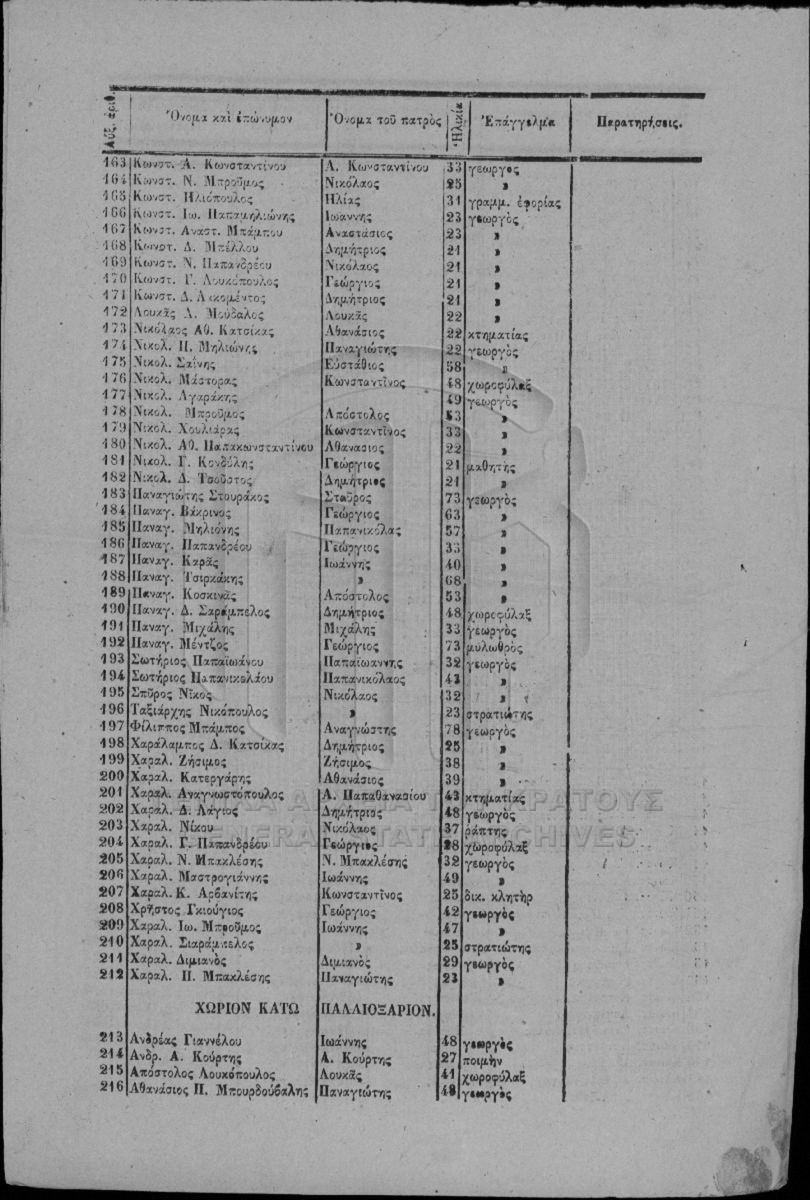 Αὔξ. ἀριθ. Ὄνομα καὶ ἐπώνυμον Ὄνομα τοῦ πατρὸς Ἡλικία Ἐπάγγελμα Παρατηρήσεις.
163 Κωνστ. Α. Κωνσταντίνου Α. Κωνσταντίνου 33 γεωργος
164 Κωνστ. Ν. Μπροῦμος Νικόλαος 25 »
165 Κωνστ. Ηλιόπουλος Ηλίας 31 γραμμ. ἐφορίας
166 Κωνστ. Ιω. Παπαμηλιώνης Ιωαννης 23 γεωργὸς
167 Κωνστ. Αναστ. Μπάμπου Αναστάσιος 23 »
168 Κωνστ. Δ. Μπέλλου Δημήτριος 21 »
169 Κωνστ. Ν. Παπανδρέου Νικόλαος 21 »
170 Κωνστ. Γ. Λουκόπουλος Γεώργιος 21 »
171 Κωνστ. Δ. Δημήτριος 21 »
172 Λουκᾶς Λ. Μούδαλος Λουκᾶς 22 »
173 Νικόλαος Αθ. Κατσίκας Αθανάσιος 22 κτηματίας
174 Νικολ. Π. Μηλιώνης Παναγιώτης 22 γεωργὸς
175 Νικολ. Σαΐνης Εὐστάθιος 58 »
176 Νικολ. Μάστορας Κωνσταντῖνος 48 χωροφύλαξ
177 Νικολ. Αγαράκης 49 γεωργὸς
178 Νικολ. Μπροῦμος Απόστολος 53 »
179 Νικολ. Χουλιάρας Κωνσταντῖνος 33 »
180 Νικολ. Αθ. Παπακωνσταντίνου Αθανασιος 22 »
181 Νικολ. Γ. Κονδύλης Γεώργιος 21 μαθητὴς
182 Νικολ. Δ. Τσοῦστος Δημήτριος 21 »
183 Παναγιώτης Στουράκος Σταῦρος 73 γεωργὸς
184 Παναγ. Βάκρινος Γεώργιος 63 »
185 Παναγ. Μηλιόνης Παπανικόλας 57 »
186 Παναγ. Παπανδρέου Γεώργιος 33 »
187 Παναγ. Καρᾶς Ιωάννης 40 »
188 Παναγ. Τσιρκάκης » 68 »
189 Παναγ. Κοσκινᾶς Απόστολος 53 »
190 Παναγ. Δ. Σαράμπελος Δημήτριος 48 χωροφύλαξ
191 Παναγ. Μιχάλης Μιχάλης 33 γεωργὸς
192 Παναγ. Μέντζος Γεώργιος 73 μυλωθρὸς
193 Σωτήριος Παπαϊωάνου Παπαϊωαννης 32 γεωργὸς
194 Σωτήριος Παπανικολάου Παπανικόλαος 43 »
195 Σπῦρος Νῖκος Νικόλαος 32 »
196 Ταξιάρχης Νικόπουλος » 23 στρατιώτης
197 Φίλιππος Μπάμπος Αναγνώστης 78 γεωργὸς
198 Χαράλαμπος Δ. Κατσίκας Δημήτριος 25 »
199 Χαραλ. Ζήσιμος Ζήσιμος 38 »
200 Χαραλ. Κατεργάρης Αθανάσιος 39 »
201 Χαραλ. Αναγνωστόπουλος Α. Παπαθανασίου 43 κτηματίας
202 Χαραλ. Δ. Λάγιος Δημήτριος 48 γεωργὸς
203 Χαραλ. Νίκου Νικόλαος 37 ράπτης
204 Χαραλ. Γ. Παπανδρέου Γεώργιος 28 χωροφύλαξ
205 Χαραλ. Ν. Μπακλέσης Ν. Μπακλέσης 32 γεωργὸς
206 Χαραλ. Μαστρογιάννης Ιωάννης 49 »
207 Χαραλ. Κ. Αρβανίτης Κωνσταντῖνος 25 δικ. κλητὴρ
208 Χρῆστος Γκιούγιος Γεώργιος 42 γεωργὸς
209 Χαραλ. Ιω. Μπροῦμος Ιωάννης 47 »
210 Χαραλ. Σιαράμπελος » 25 στρατιώτης
211 Χαραλ. Διμιανὸς Διμιανὸς 29 γεωργὸς
212 Χαραλ. Π. Μπακλέσης Παναγιώτης 23 »
ΧΩΡΙΟΝ ΚΑΤΩ ΠΑΛΑΙΟΞΑΡΙΟΝ.
213 Ανδρέας Γιαννέλου Ιωάννης 48 γεωργὸς
214 Ανδρ. Α. Κούρτης Α. Κούρτης 27 ποιμὴν
215 Απόστολος Λουκόπουλος Λουκᾶς 41 χωροφύλαξ
216 Αθανάσιος Π. Μπουρδούβαλης Παναγιώτης 48 γεωργὸς
GENERAL STATE ARCHIVES